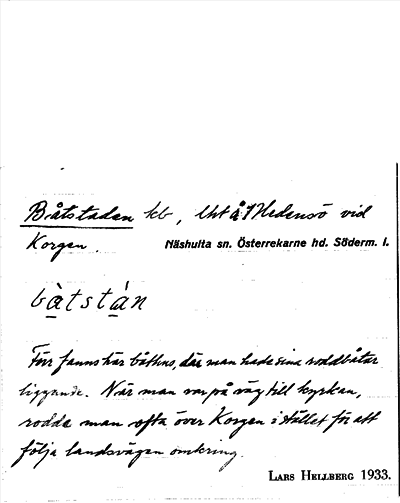 Båtstaden kb, lht å 1 Hedensö vid
Korgen. Näshulta sn. Österrekarne hd. Söderm. l.
bàtstán
Förr fanns här båthus, där man hade sina roddbåtar
liggande. När man var på väg till kyrkan,
rodde man ofta över Korgen i stället för att
följa landsvägen omkring.
LARS HELLBERG 1933.